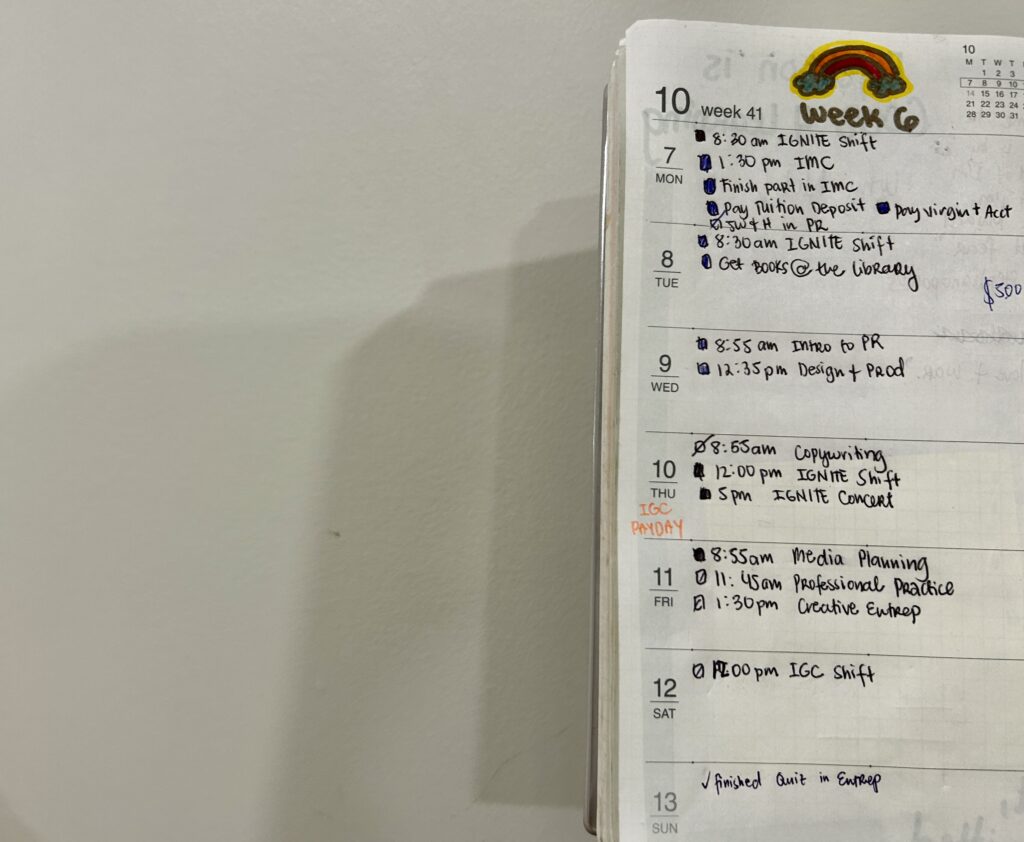 10 week 41
week 6
10
M T W T
1 2 3
7 8 9 10
14 15 16 17
21 22 23 24
28 29 30 31
7
MON
8:30 am IGNITE Shift
1:30 pm IMC
Finish part in IMC
Pay Tuition Deposit Pay Virgin + Acct
in PR
8
TUE
8:30am IGNITE Shift
Get BOOKS @ the Library
$500
9
WED
8:55 am Intro to PR
12:35pm Design + Prod
10
THU
IGC
PAYDAY
8:55am Copywriting
12:00 pm IGNITE Shift
5pm IGNITE Concert
11
FRI
8:55am Media Planning
11:45am Professional Practice
1:30pm Creative Entrep
12
SAT
:00 pm IGC Shift
13
SUN
✓ finished Quiz in Entrep